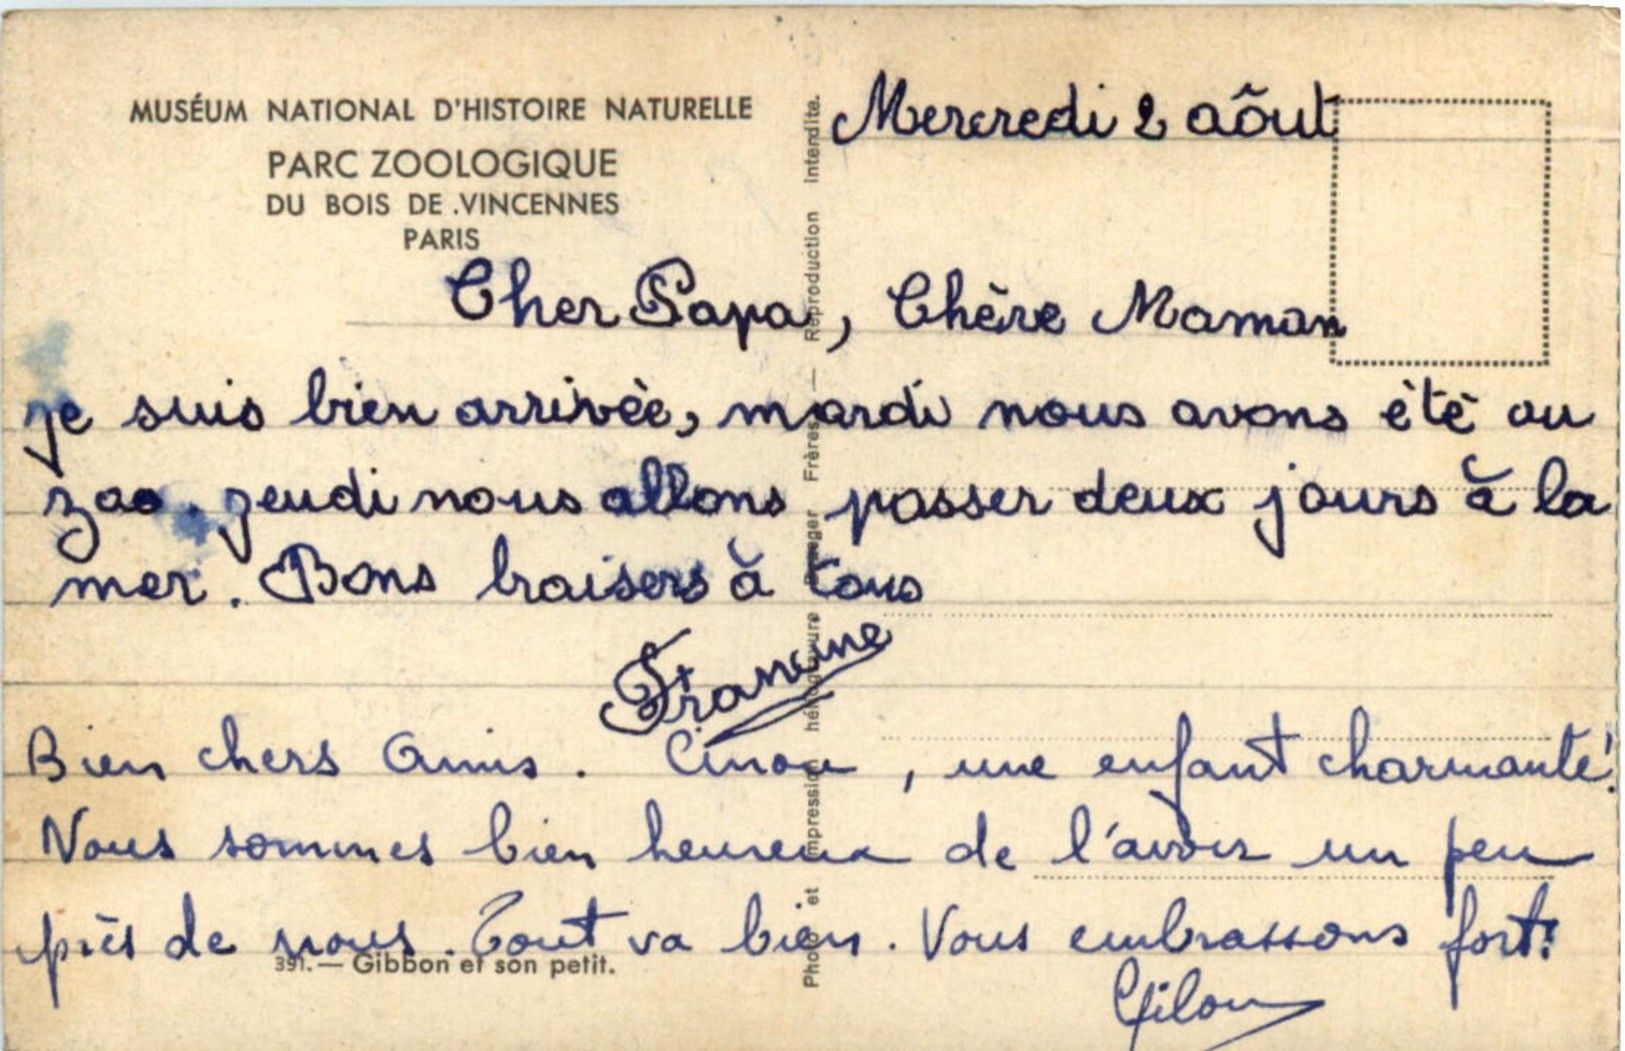 MUSÉUM NATIONAL D'HISTOIRE NATURELLE
PARC ZOOLOGIQUE
DU BOIS DE VINCENNES
PARIS
Mercredi 2 aôut
Cher Papa, Chère Maman
je suis bien arrivée, mardi nous avons été au
zoo. jeudi nous allons passer deux jours à la
mer. Bons baisers à tous
Francine
Bien chers Amis. Cinou, une enfant charmante!
Nous sommes bien heureux de l'avoir un peu
près de nous. Tout va bien. Vous embrassons fort!
Gilou
391. — Gibbon et son petit.
Photo et impression héliogravure Brager Frères — Reproduction interdite.